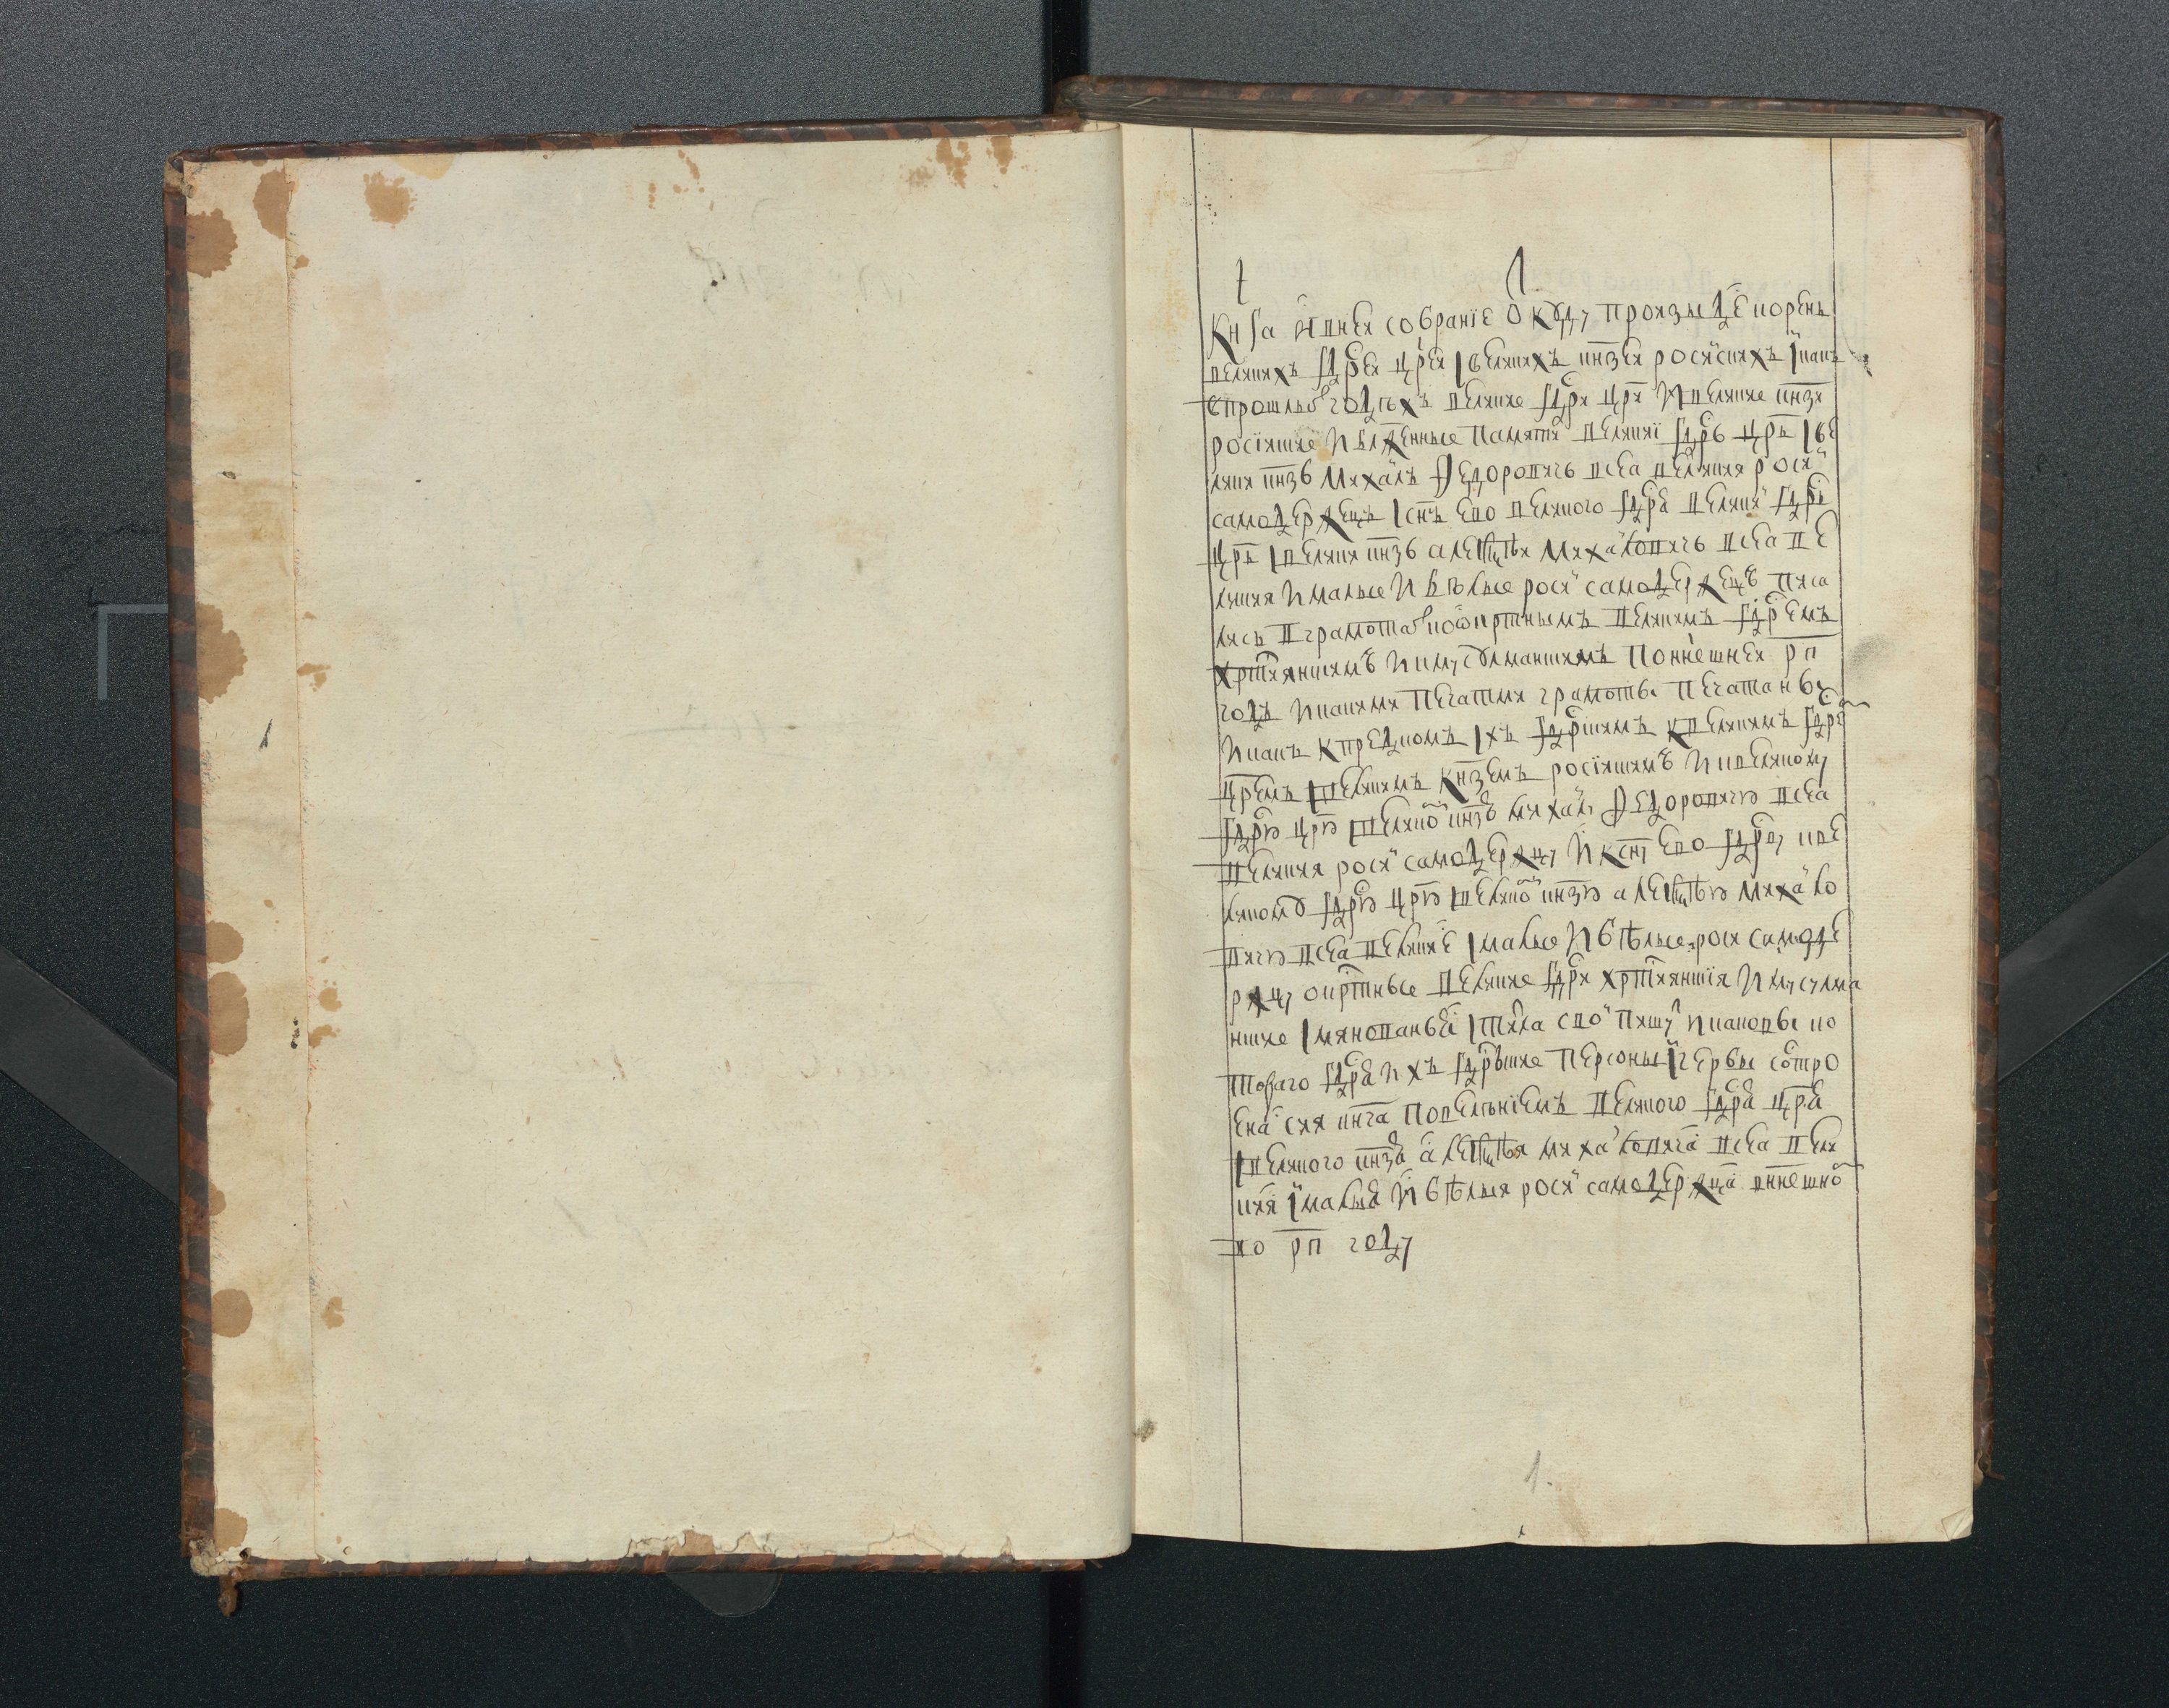 1
Кнга а внеи собрание ѿкуду произыде корень
великихъ гдрей црей и великихъ кнзей росиских и какъ
в прошлых годѣхъ великие гдри цри и великие кнзи
росіиские и блженные памяти великиі гдрь црь и ве
лики кнзь Михаилъ Федоровичь всеа великия роси
самодержецъ и снъ ево великого гдря великиі гдрь
црь и велики кнзь Алеѯѣи Михаиловичь всеа ве
ликия и малые и бѣлые роси самодержецъ писа
лись в грамотах ко ѡкрстнымъ великимъ гдремъ
хрстиянскимъ и к мусулманскимъ по ннешнеи рп
годъ и какими печатми грамоты печатаны
и какъ к предкомъ ихъ гдрскимъ к великимъ гдре
црем и великимъ кнземъ росіискимъ и к великому
гдрю црю и великому кнзю Михаилу Федоровичю всеа
великия роси самодержцу и к сну ево гдрву к ве
ликому гдрю црю и великому кнзю Алеѯѣю Михаило
вичю всеа великие и малые и бѣлые роси самоде
ржцу окрстные великие гдри хрстиянскиі и мусулма
нские имянованьі и титла свои пишут и каковы ко
тораго гдря ихъ гдрьские персоны и гербы состро
ена сия кнга повелѣниемъ великого гдря цря
и великого кнзя Алеѯѣя Михаиловича всеа вели
кия и малыя и бѣлыя роси самодержца в ннешнем
во рп году
1.